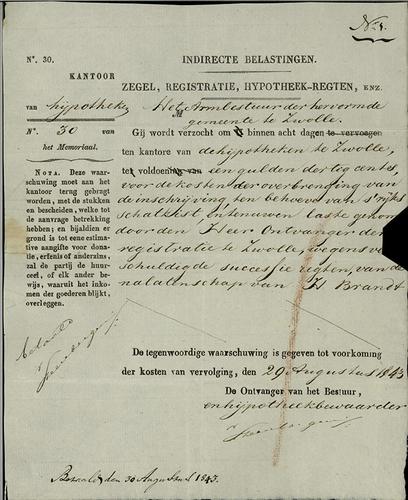 N° 1.
N°. 30.
INDIRECTE BELASTINGEN.
KANTOOR
ZEGEL, REGISTRATIE, HYPOTHEEK-REGTEN, ENZ.
van hypotheken
Het Armbestuur der hervormde
gemeente te Zwolle.
N°. 30 van
het Memoriaal.
Gij wordt verzocht om binnen acht dagen te vervoegen
ten kantore van de hypotheken te Zwolle,
te voldoen van een gulden dertog centes,
voor de kosten der overbrenging van
de inschrijving ten behoeve van 's rijks
schatkist, en te uwen laste genomen
door den Heer Ontvanger der
registratie te Zwolle, wegens ver
schuldigde successie regten, van de
nalatenschap van H Brandt
NOTA. Deze waar-
schuwing moet aan het
kantoor terug gebragt
worden, met de stukken
en bescheiden, welke tot
de aanvrage betrekking
hebben; en bijaldien er
grond is tot eene estimative
aangifte voor do-
natie, erfenis of anderzins,
zal de partij de huur-
ceel, of elk ander be-
wijs, waaruit het inkomen
der goederen blijkt,
overleggen.
betaald
De tegenwoordige waarschuwing is gegeven tot voorkoming
der kosten van vervolging, den 29 Augustus 1843
De Ontvanger van het Bestuur,
en hypotheekbewaarder
Betaald den 30 Augustus 1843.